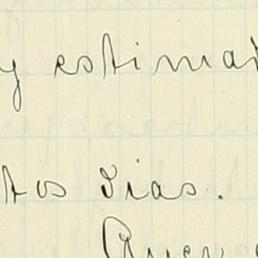 y estima
tos dias.
Ayer